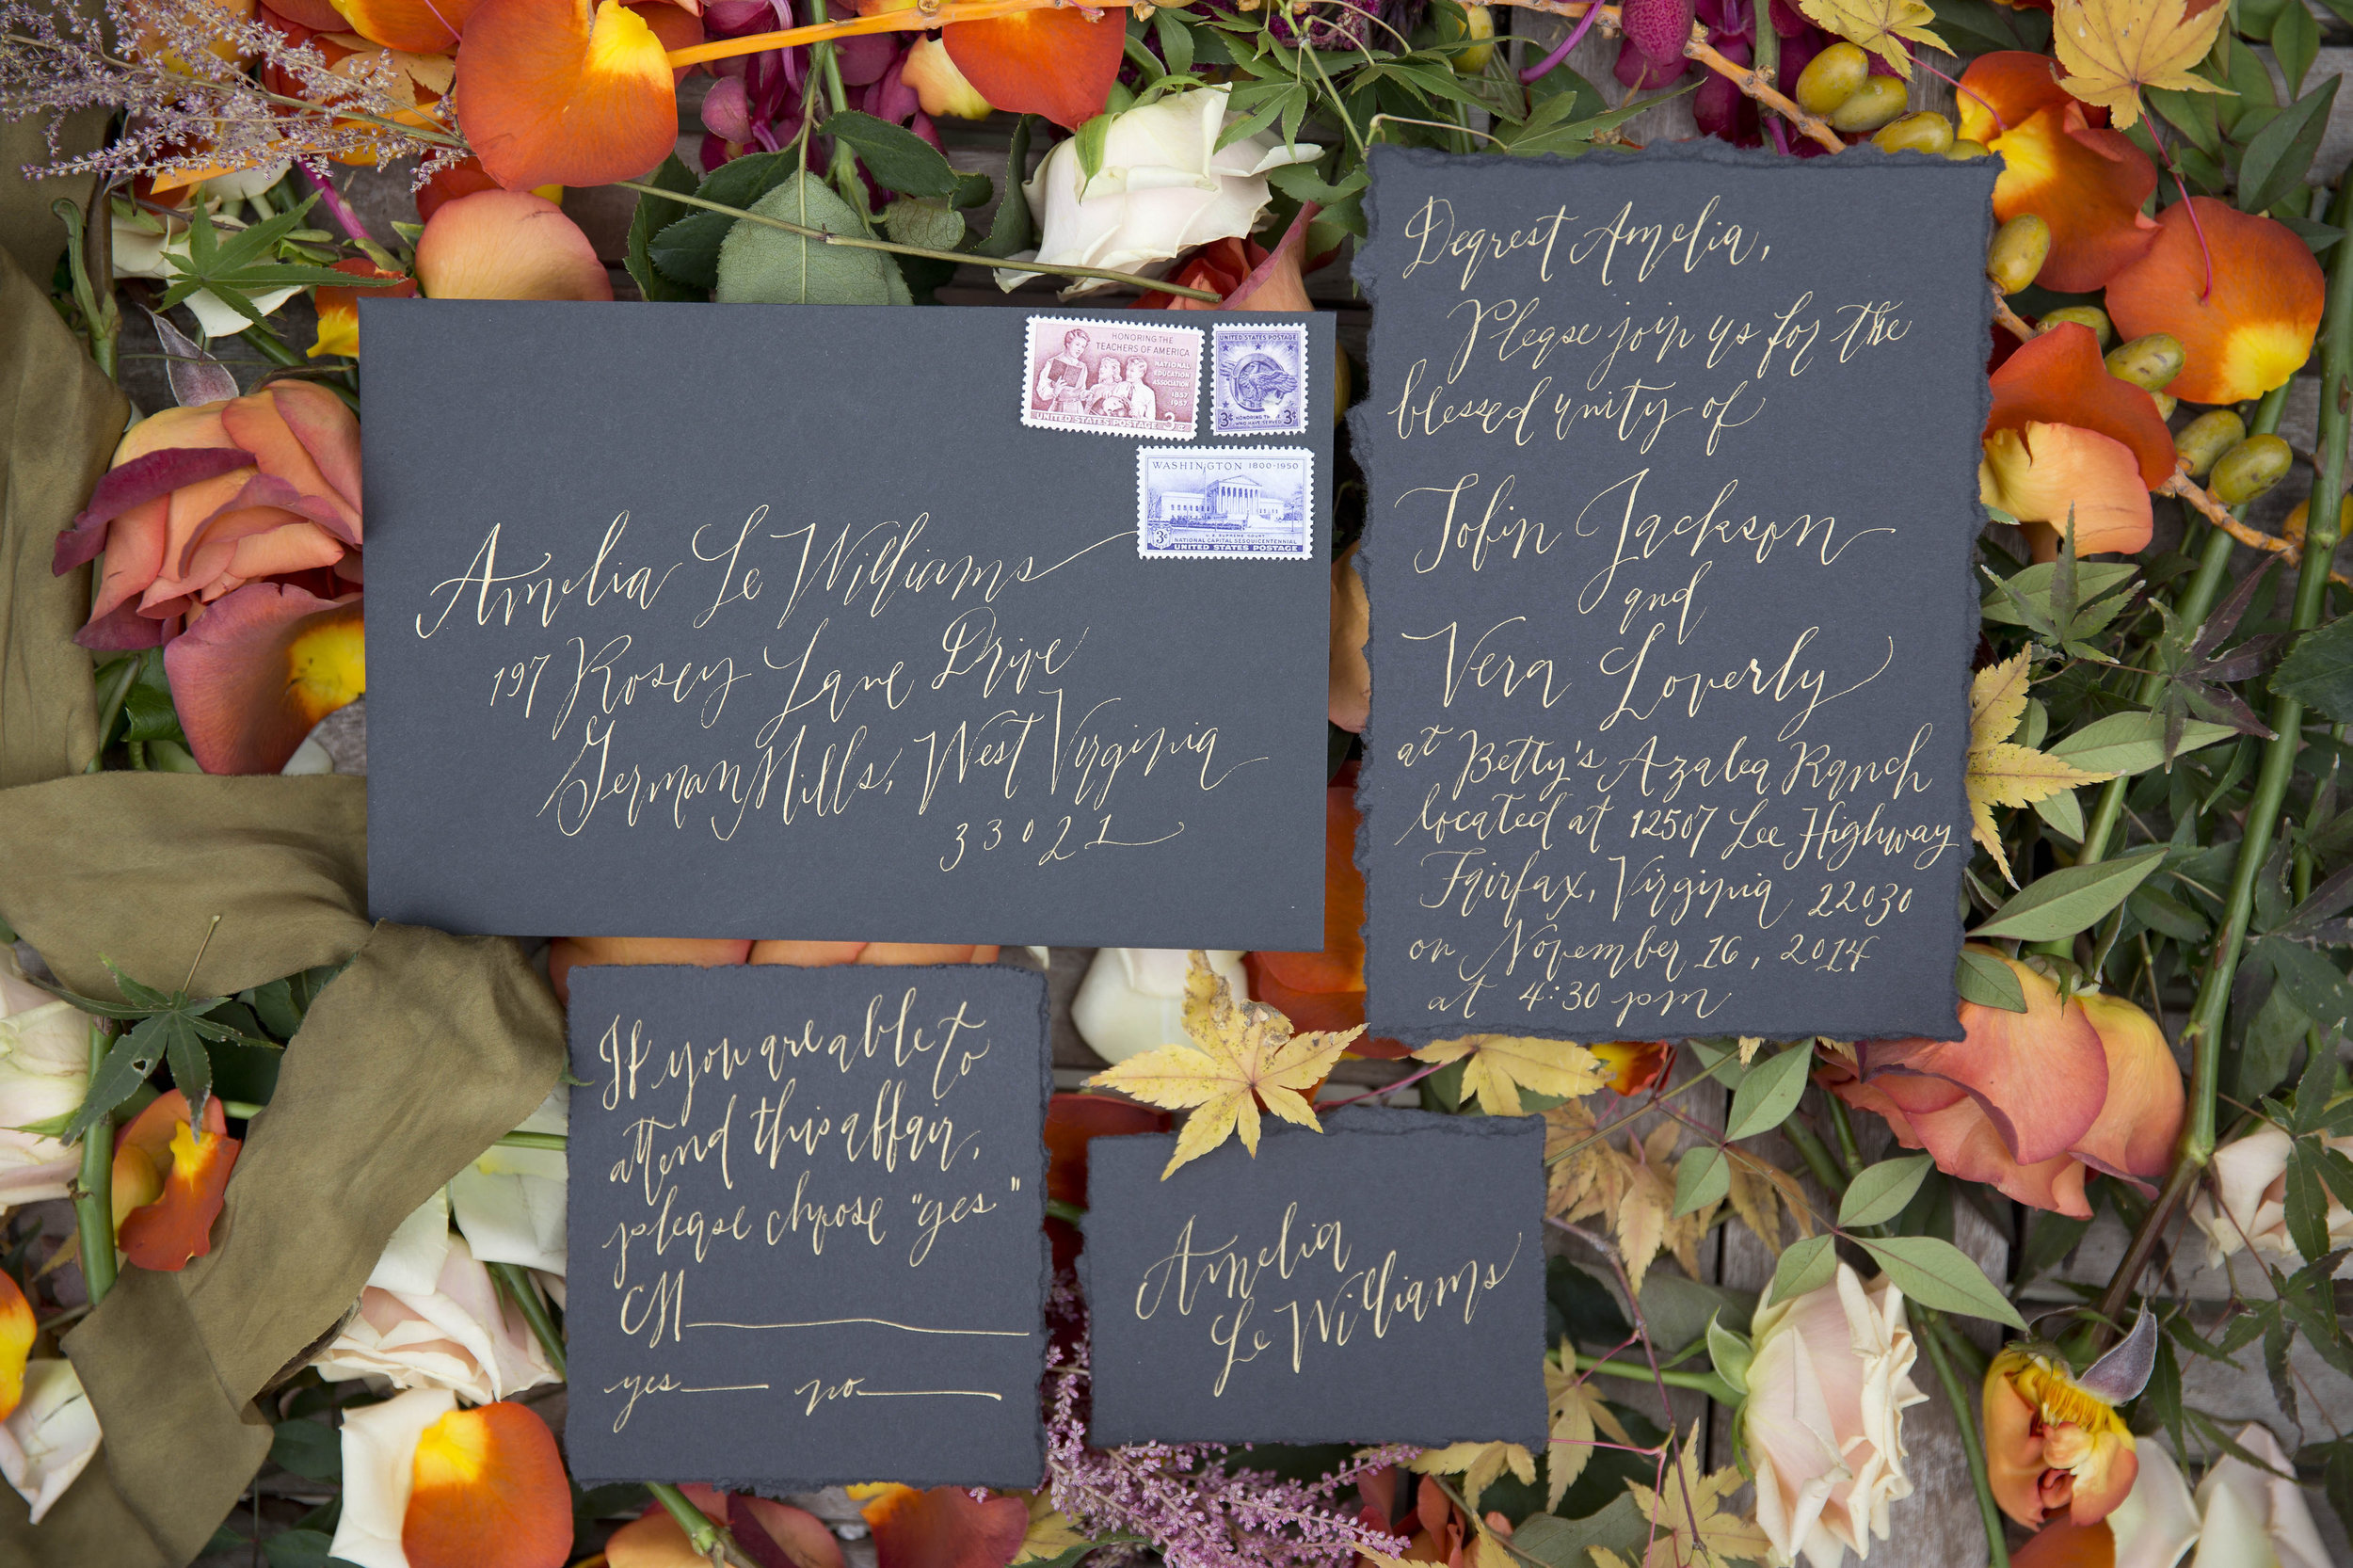 HONORING THE
TEACHERS OF AMERICA
NATIONAL
EDUCATION
ASSOCIATION
1857
1957
3¢
UNITED STATES POSTAGE
UNITED STATES POSTAGE
3¢ HONORING THOSE 3¢
WHO HAVE SERVED
WASHINGTON 1800-1950
3¢
U.S. SUPREME COURT
NATIONAL CAPITAL SESQUICENTENNIAL
UNITED STATES POSTAGE
Amelia Le Williams
197 Rosey Lane Drive
German Hills, West Virginia
33021
Dearest Amelia,
Please join us for the
blessed unity of
Tobin Jackson
and
Vera Loverly
at Betty's Azalea Ranch
located at 12507 Lee Highway
Fairfax, Virginia 22030
on November 16, 2014
at 4:30 pm
If you are able to
attend this affair,
please choose "yes"
M
yes no
Amelia
Le Williams